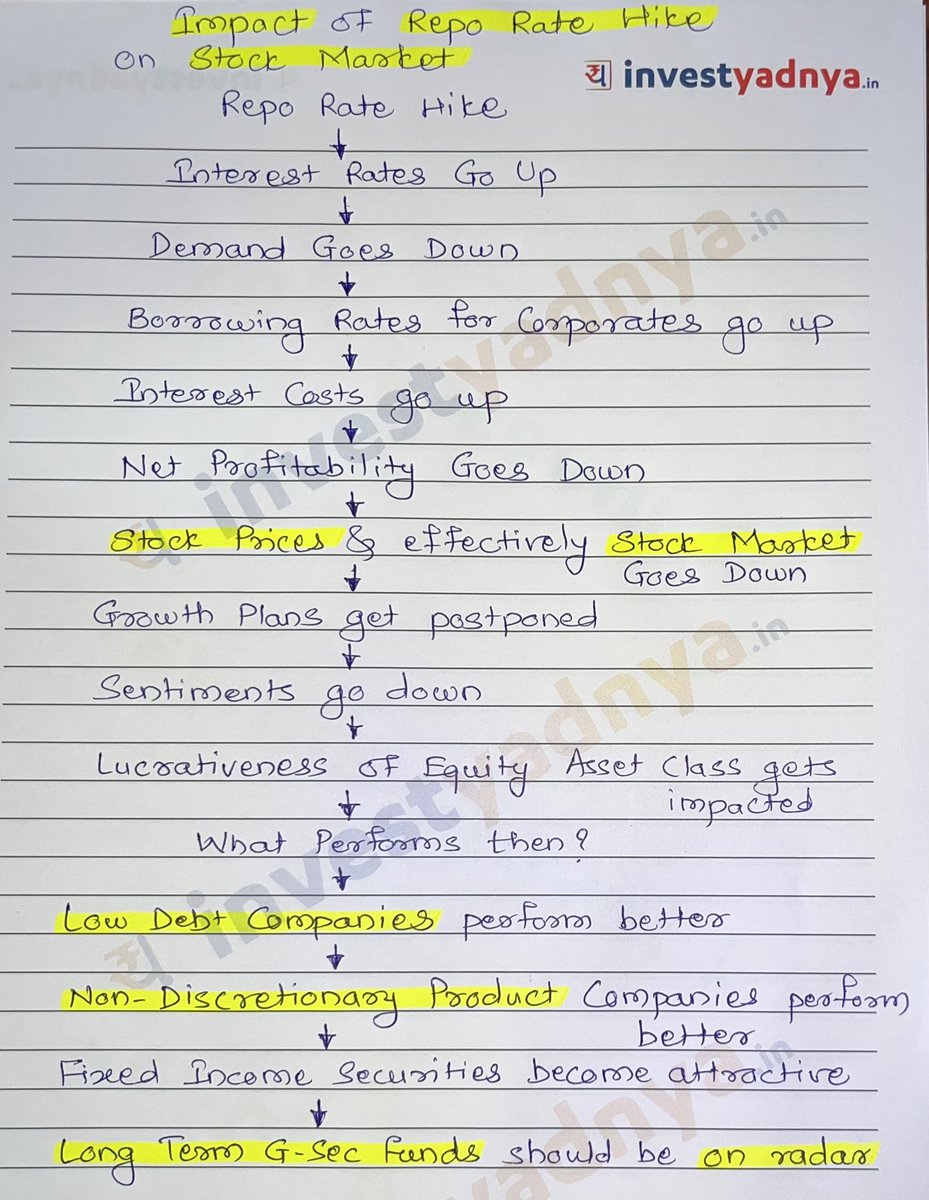 Impact of Repo Rate Hike
on Stock Market
य investyadnya.in
Repo Rate Hike
Interest Rates Go Up
Demand Goes Down
Borrowing Rates for Corporates go up
Interest Costs go up
Net Profitability Goes Down
Stock Prices & effectively Stock Market
Goes Down
Growth Plans get postponed
Sentiments go down
Lucrativeness of Equity Asset Class gets
impacted
What Performs then?
Low Debt Companies perform better
Non-Discretionary Product Companies perform
better
Fixed Income Securities become attractive
Long Term G-Sec Funds should be on radar
य investyadnya.in
य investyadnya.in
investyadnya.in